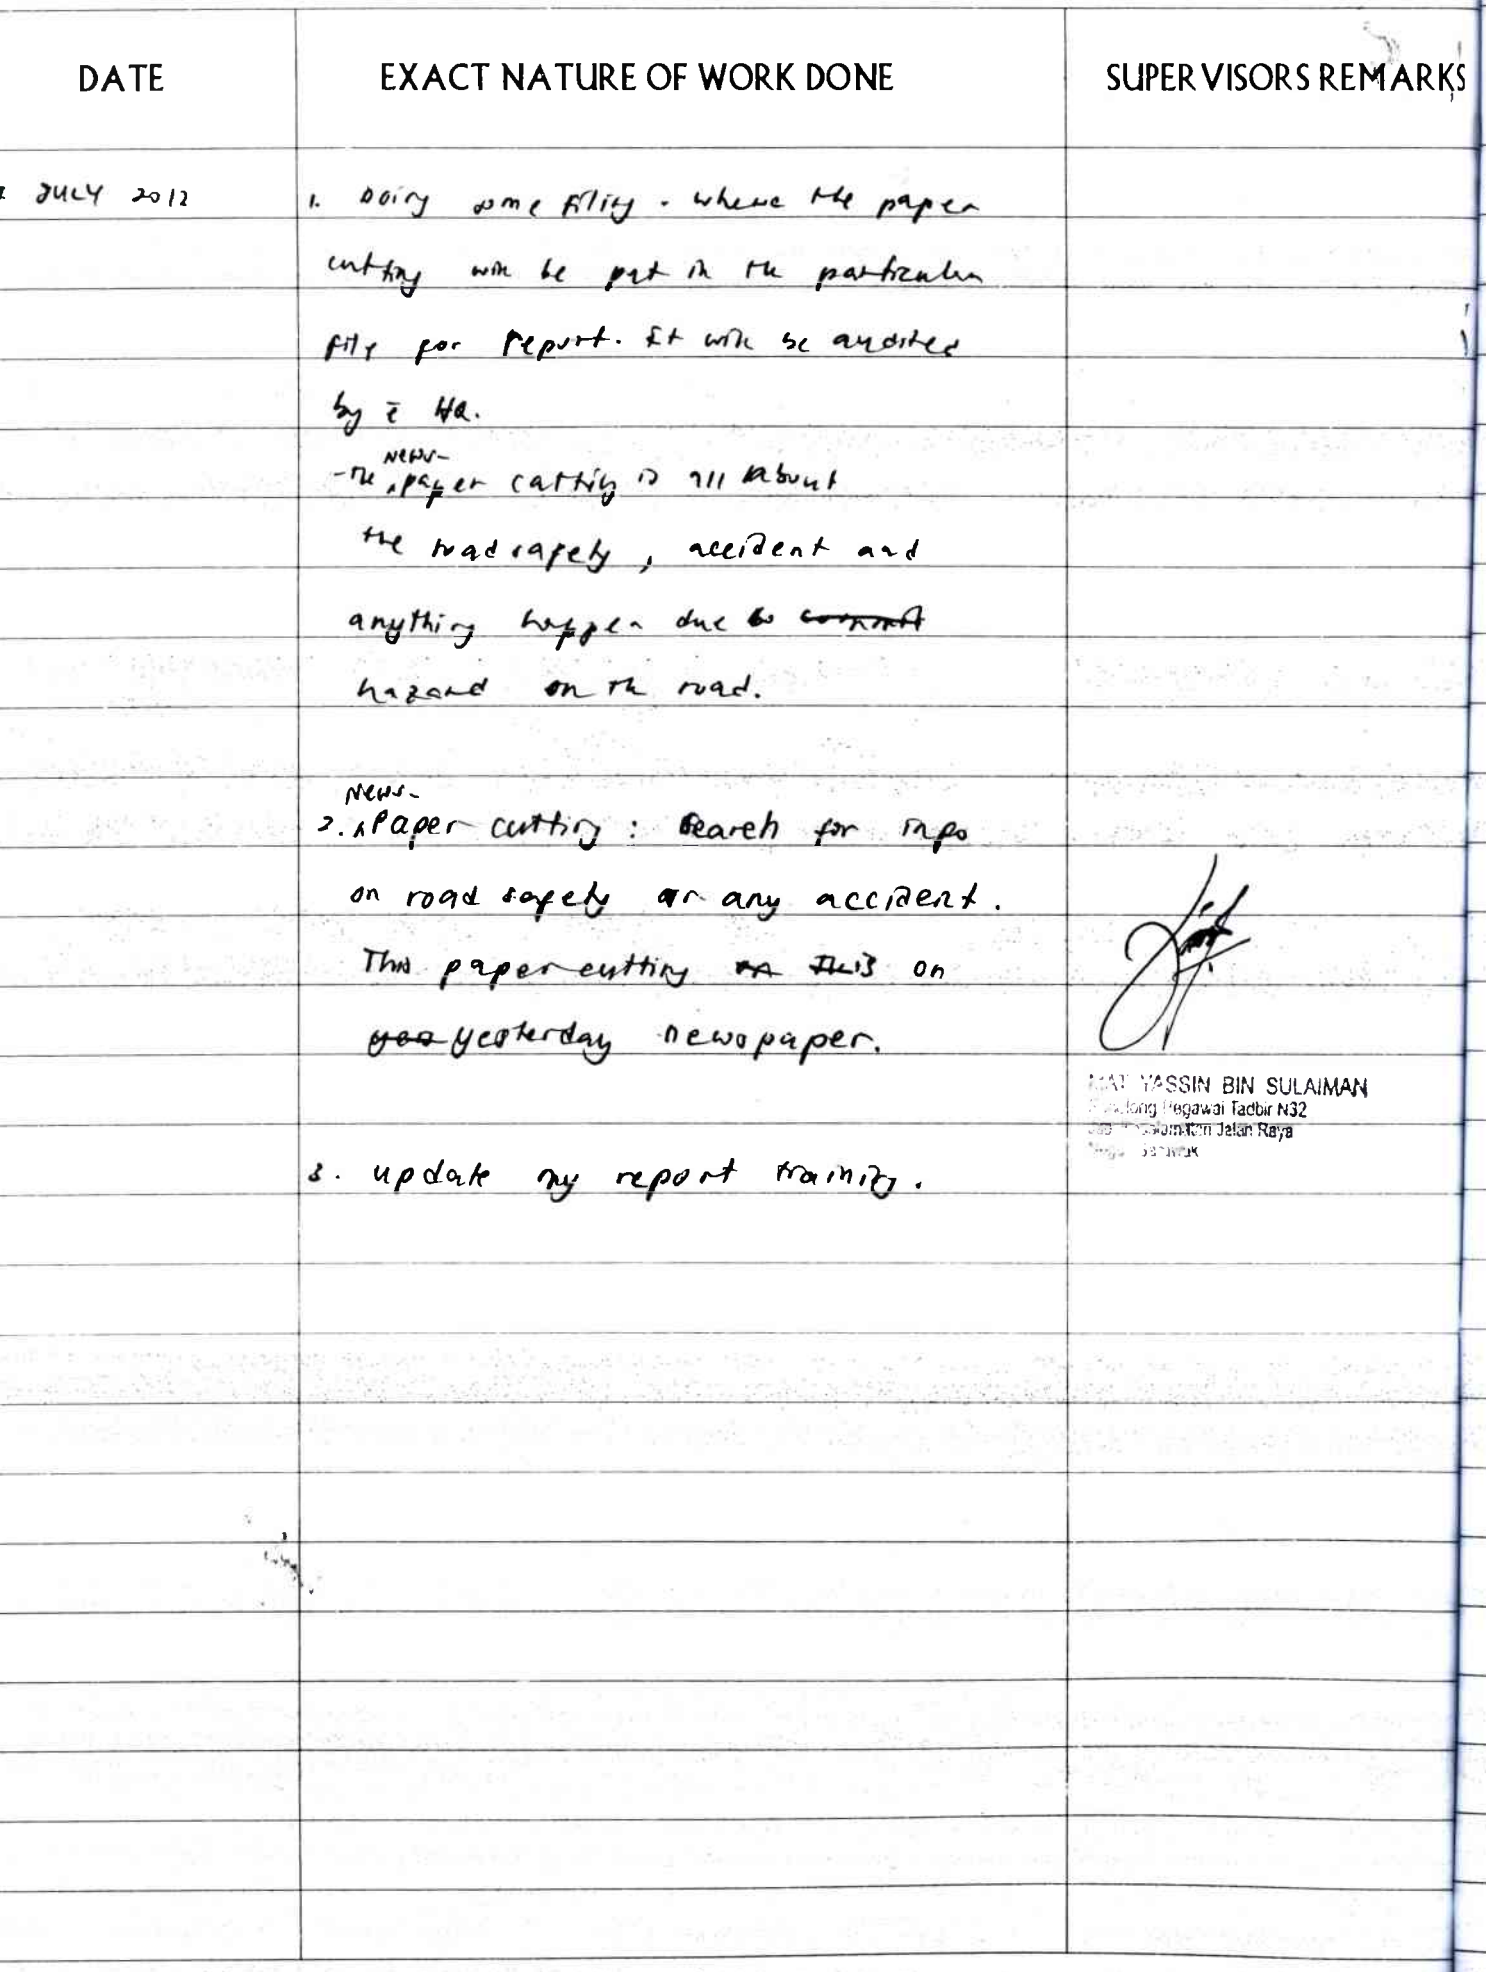 DATE EXACT NATURE OF WORK DONE SUPERVISORS REMARKS
JULY 2012 1. Doing some filing . where the paper
cutting will be put in the particular
file for report. It will be audited
by HQ.
- The news-paper cutting is all about
the road safety , accident and
anything happen due to
hazard on the road.
2. News-Paper cutting : Search for info
on road safety or any accident.
This paper cutting on
yesterday newspaper.
MAT YASSIN BIN SULAIMAN
Pegawai Tadbir N32
Jalan Raya
3. update my report training.